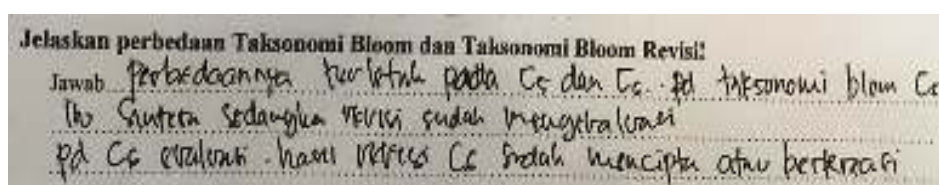 Jelaskan perbedaan Taksonomi Bloom dan Taksonomi Bloom Revisi!
Jawab Perbedaannya terletak pada C5 dan C6. pd taksonomi blom C5
itu sintesa sedangkan revisi sudah mengevaluasi
pd C6 evaluasi. hasil C6 sudah mencipta atau berkreasi